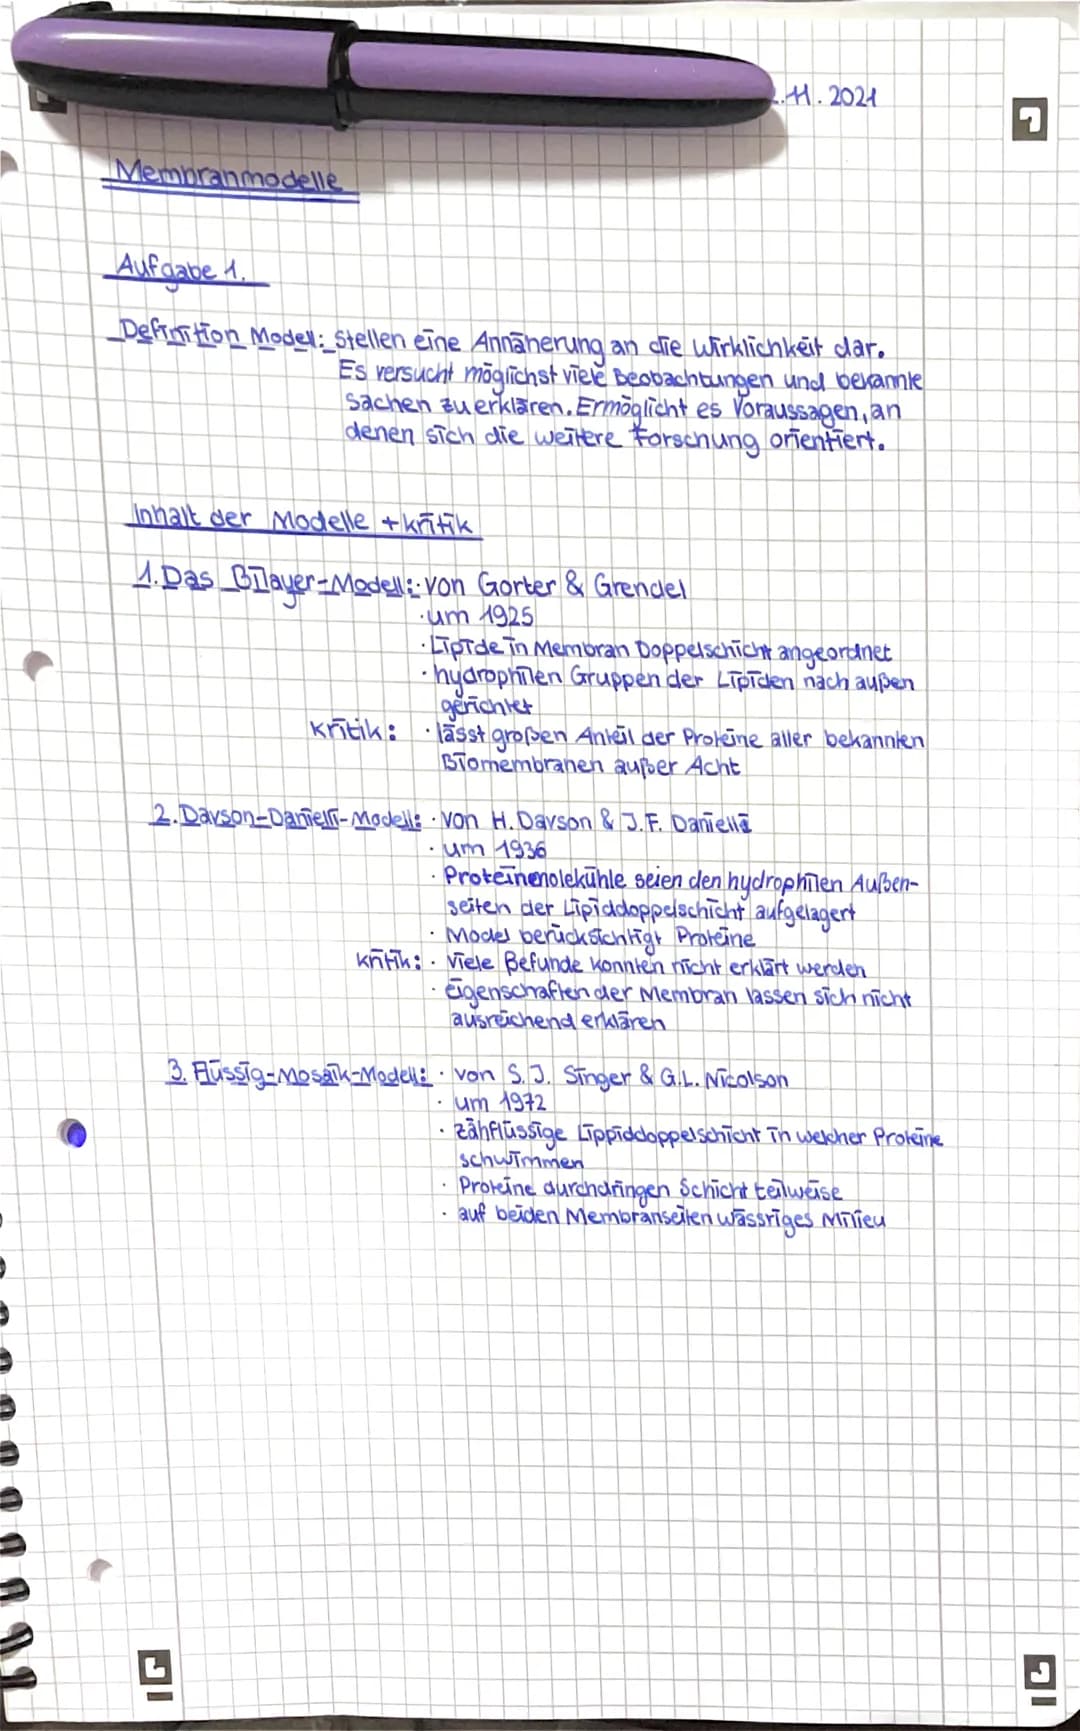 .11.2021
Membranmodelle
Aufgabe 1.
Definition Modell: Stellen eine Annäherung an die Wirklichkeit dar.
Es versucht möglichst viele Beobachtungen und bekannte
Sachen zu erklären. Ermöglicht es Voraussagen, an
denen sich die weitere Forschung orientiert.
Inhalt der Modelle + Kritik
1. Das Bilayer-Modell: · von Gorter & Grendel
· um 1925
· Lipide in Membran Doppelschicht angeordnet
· hydrophilen Gruppen der Lipiden nach außen
gerichtet
Kritik: · lässt großen Anteil der Proteine aller bekannten
Biomembranen außer Acht
2. Davson-Danielli-Modell: · von H. Davson & J.F. Danielli
· um 1936
· Proteinenolekühle seien den hydrophilen Außen-
seiten der Lipiddoppelschicht aufgelagert
· Model berücksichtigt Proteine
Kritik: · Viele Befunde konnten nicht erklärt werden
· Eigenschaften der Membran lassen sich nicht
ausreichend erklären
3. Flüssig-Mosaik-Modell: · von S.J. Singer & G.L. Nicolson
· um 1972
· zähflüssige Lippiddoppelschicht in welcher Proteine
schwimmen
· Proteine durchdringen Schicht teilweise
· auf beiden Membranseiten wässriges Milieu